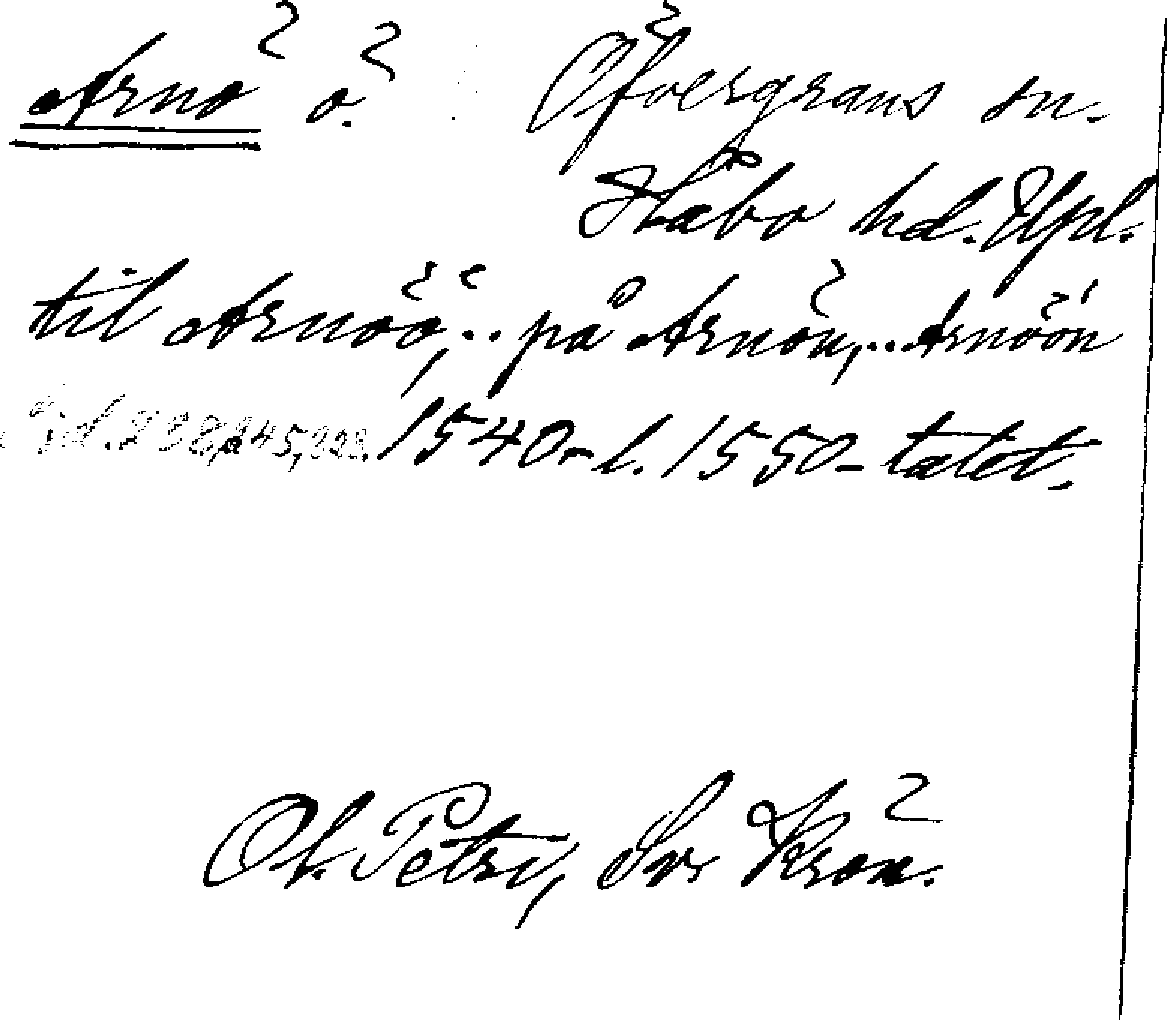 Arnö ö. Öfvergrans sn.
Håbo hd. Upl.
til Arnöö,.. på Arnön,.. Arnöön
1540- l. 1550-talet.
Ol. Petri, Sv. Krön.